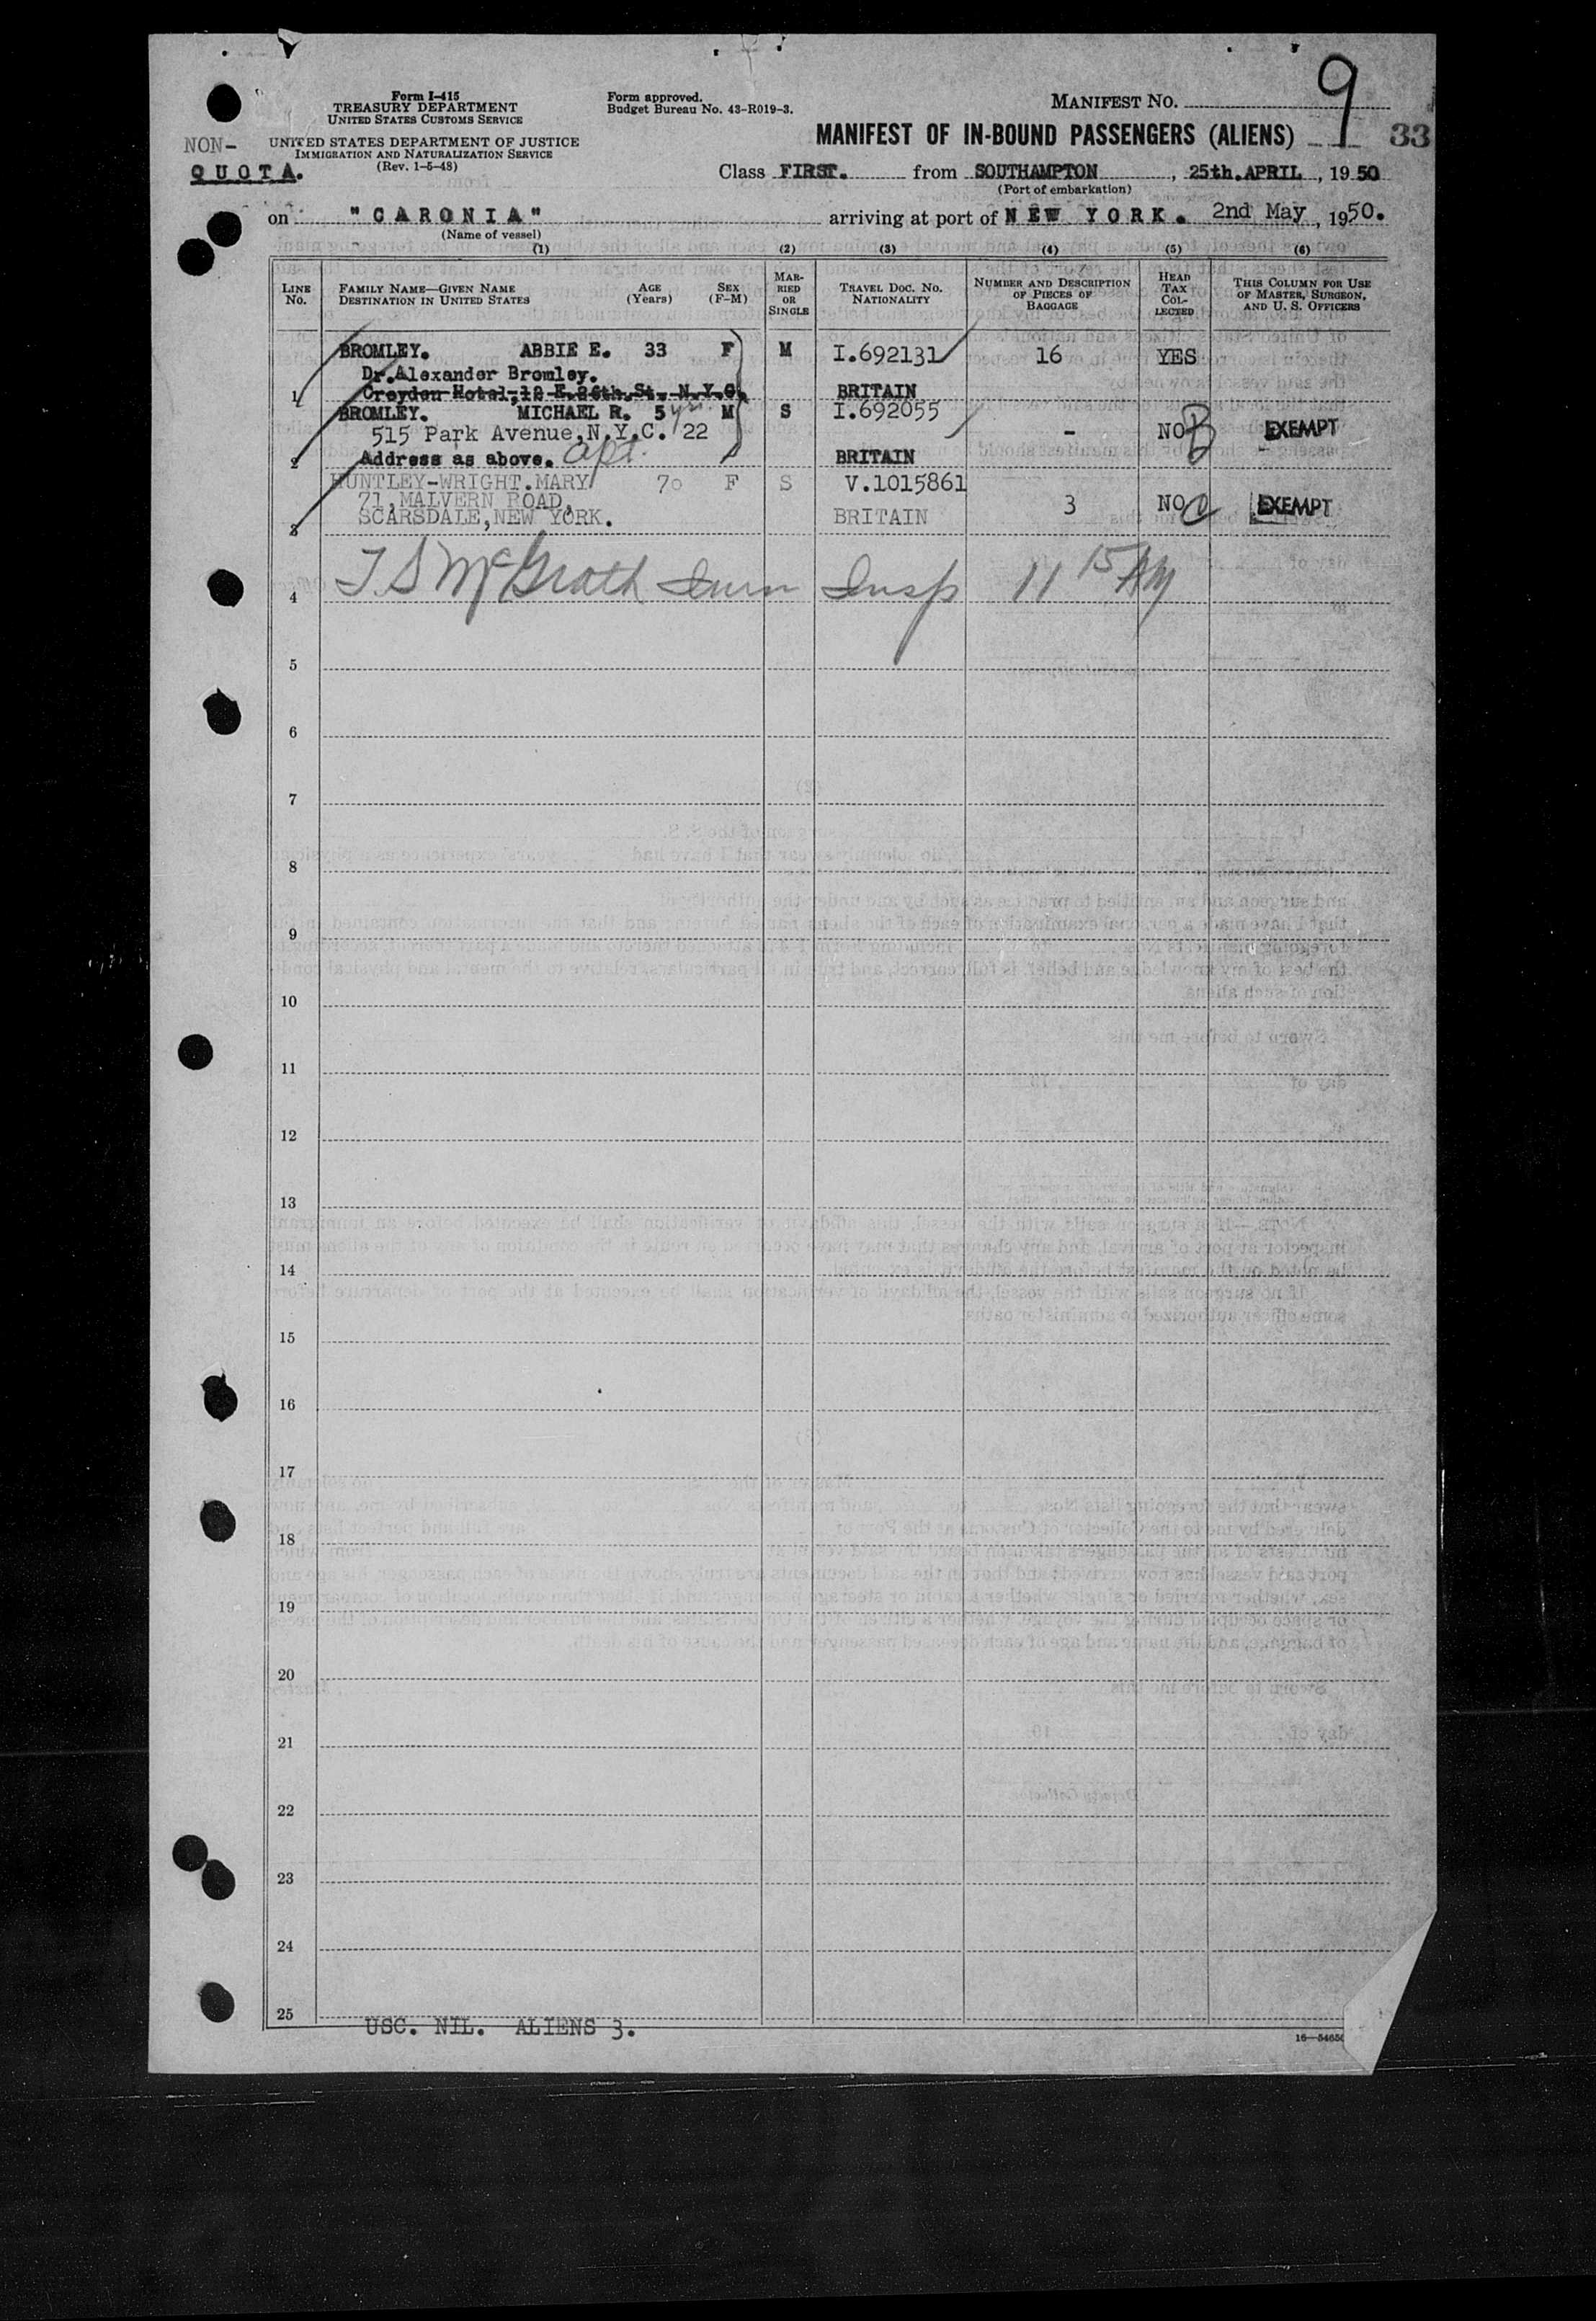 Form I-415
TREASURY DEPARTMENT
UNITED STATES CUSTOMS SERVICE
UNITED STATES DEPARTMENT OF JUSTICE
IMMIGRATION AND NATURALIZATION SERVICE
(Rev. 1-5-48)
NON-
QUOTA.
Form approved.
Budget Bureau No. 43-R019-3.
MANIFEST NO. 9
MANIFEST OF IN-BOUND PASSENGERS (ALIENS) 33
Class FIRST. from SOUTHAMPTON, 25th.APRIL, 1950
(Port of embarkation)
on "CARONIA" arriving at port of NEW YORK. 2nd May, 1950.
(Name of vessel)
(1) (2) (3) (4) (5) (6)
LINE No. FAMILY NAME—GIVEN NAME DESTINATION IN UNITED STATES AGE (Years) SEX (F-M) MARRIED OR SINGLE TRAVEL DOC. NO. NATIONALITY NUMBER AND DESCRIPTION OF PIECES OF BAGGAGE HEAD TAX COLLECTED THIS COLUMN FOR USE OF MASTER, SURGEON, AND U. S. OFFICERS
BROMLEY. ABBIE E. 33 F M I.692131 16 YES
Dr.Alexander Bromley.
1 Croydon Hotel,12 E.86th.St., N.Y.C. BRITAIN
BROMLEY. MICHAEL R. 5 yrs. M S I.692055
515 Park Avenue,N.Y.C. 22 - NO B EXEMPT
2 Address as above. apt. BRITAIN
HUNTLEY-WRIGHT.MARY 70 F S V.1015861
71,MALVERN ROAD, 3 NO C EXEMPT
3 SCARSDALE,NEW YORK. BRITAIN
4 T S McGrath Imm Insp 11 15 AM
5
6
7
8
9
10
11
12
13
14
15
16
17
18
19
20
21
22
23
24
25
USC. NIL. ALIENS 3.